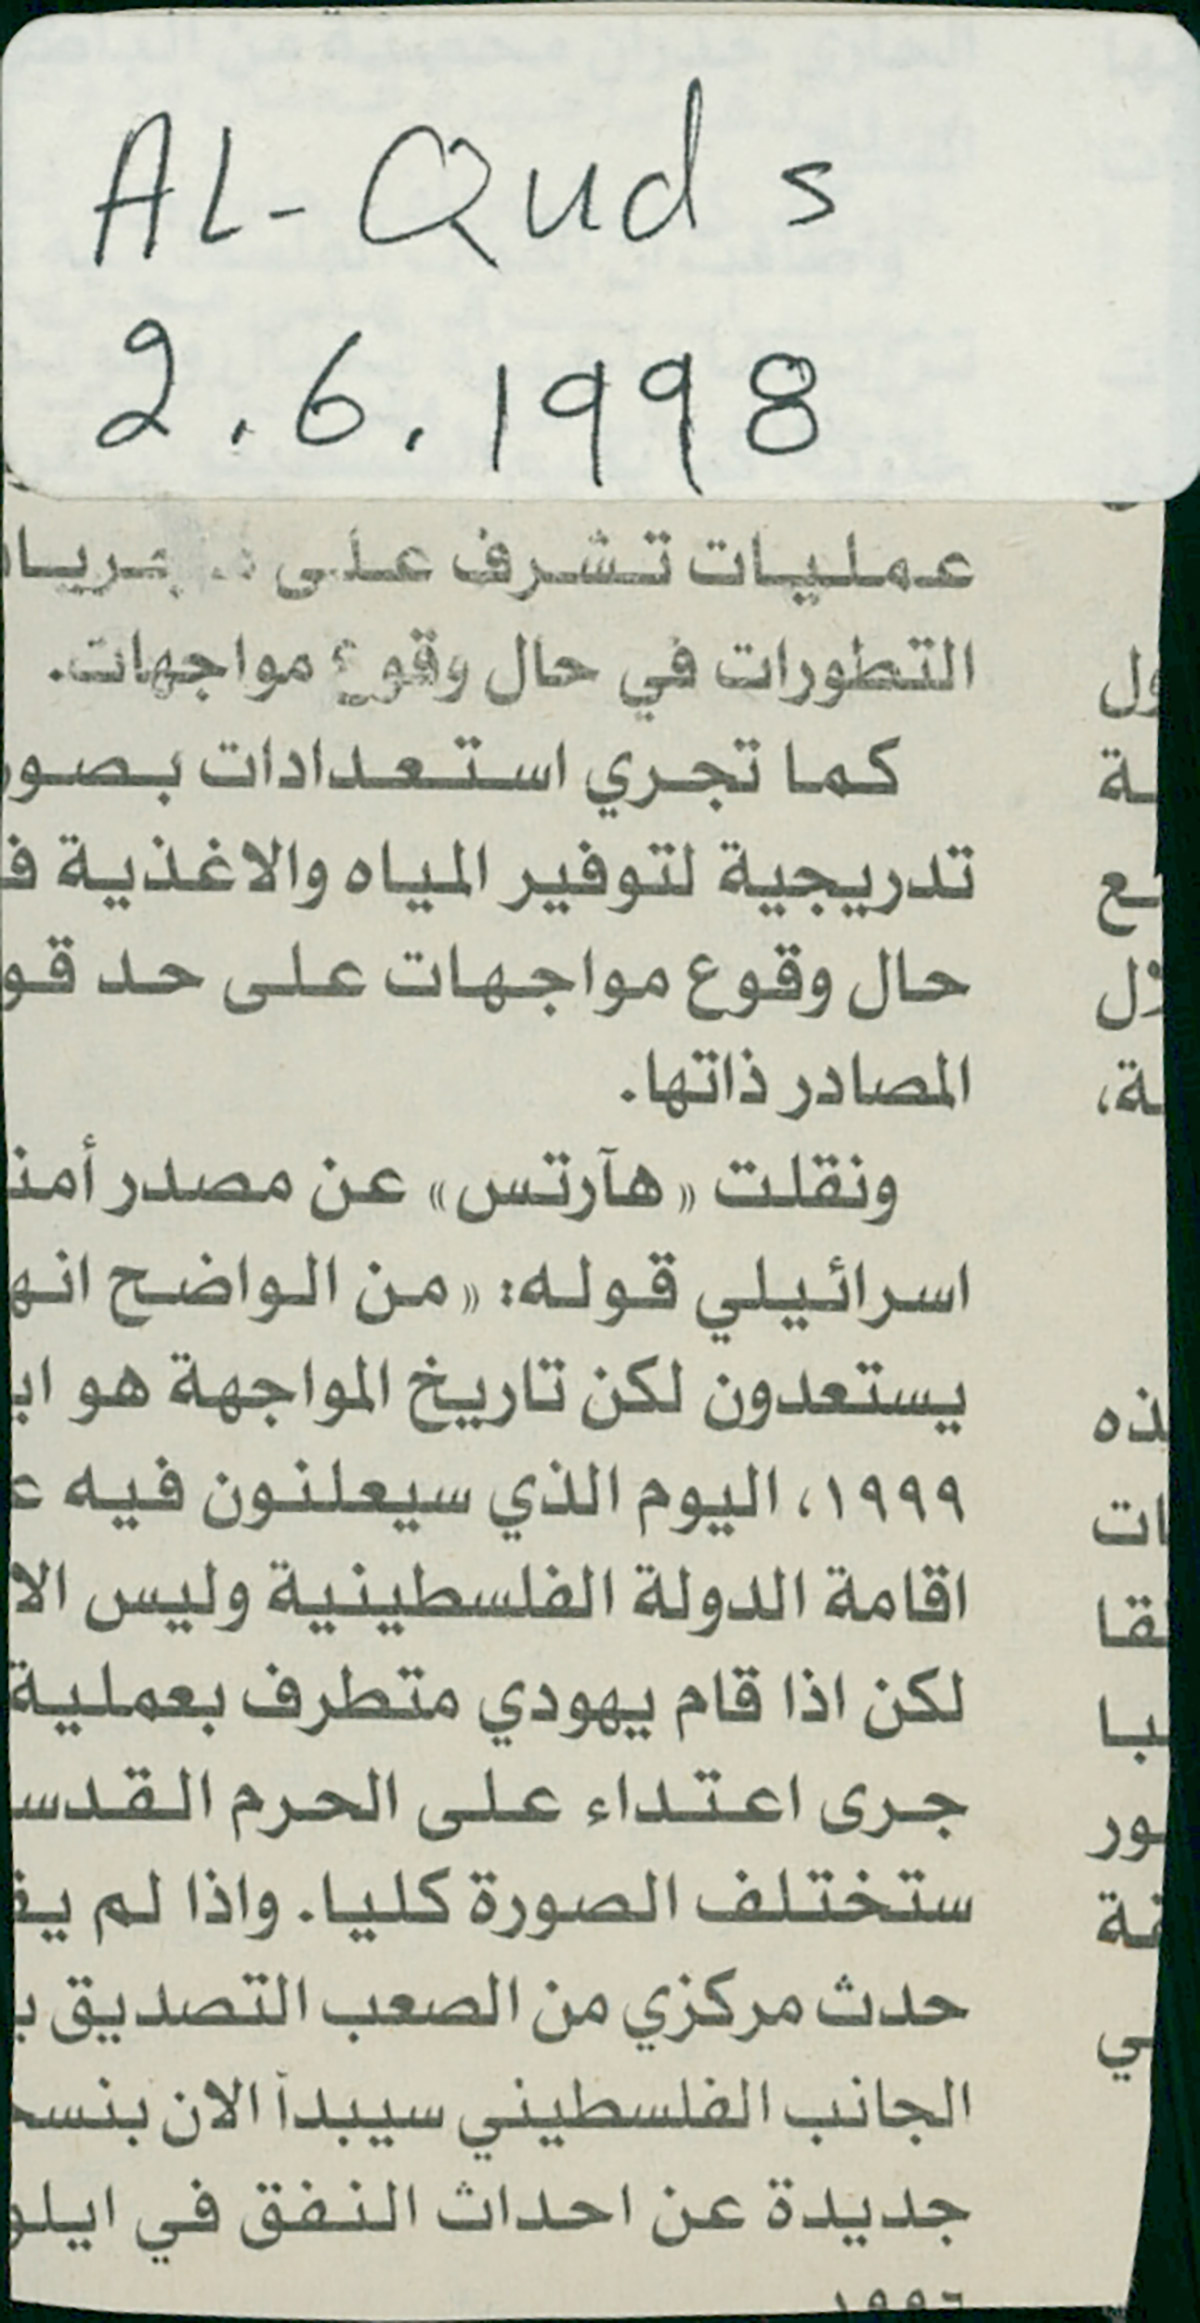 AL-Quds
2.6.1998
عمليات تشرف على
التطورات في حال وقوع مواجهات.
كما تجري استعدادات بصور
تدريجية لتوفير المياه والاغذية ف
حال وقوع مواجهات على حد قو
المصادر ذاتها.
ونقلت «هآرتس» عن مصدر أمن
اسرائيلي قوله: «من الواضح انه
يستعدون لكن تاريخ المواجهة هو اي
١٩٩٩، اليوم الذي سيعلنون فيه ع
اقامة الدولة الفلسطينية وليس الا
لكن اذا قام يهودي متطرف بعملية
جرى اعتداء على الحرم القدس
ستختلف الصورة كليا. واذا لم يق
حدث مركزي من الصعب التصديق ب
الجانب الفلسطيني سيبدأ الان بنسخ
جديدة عن احداث النفق في ايلو
١٩٩٦
ول
ـة
ـع
لال
ـة،
ـذه
ات
ـقا
ـبا
ـور
ـة
ـي